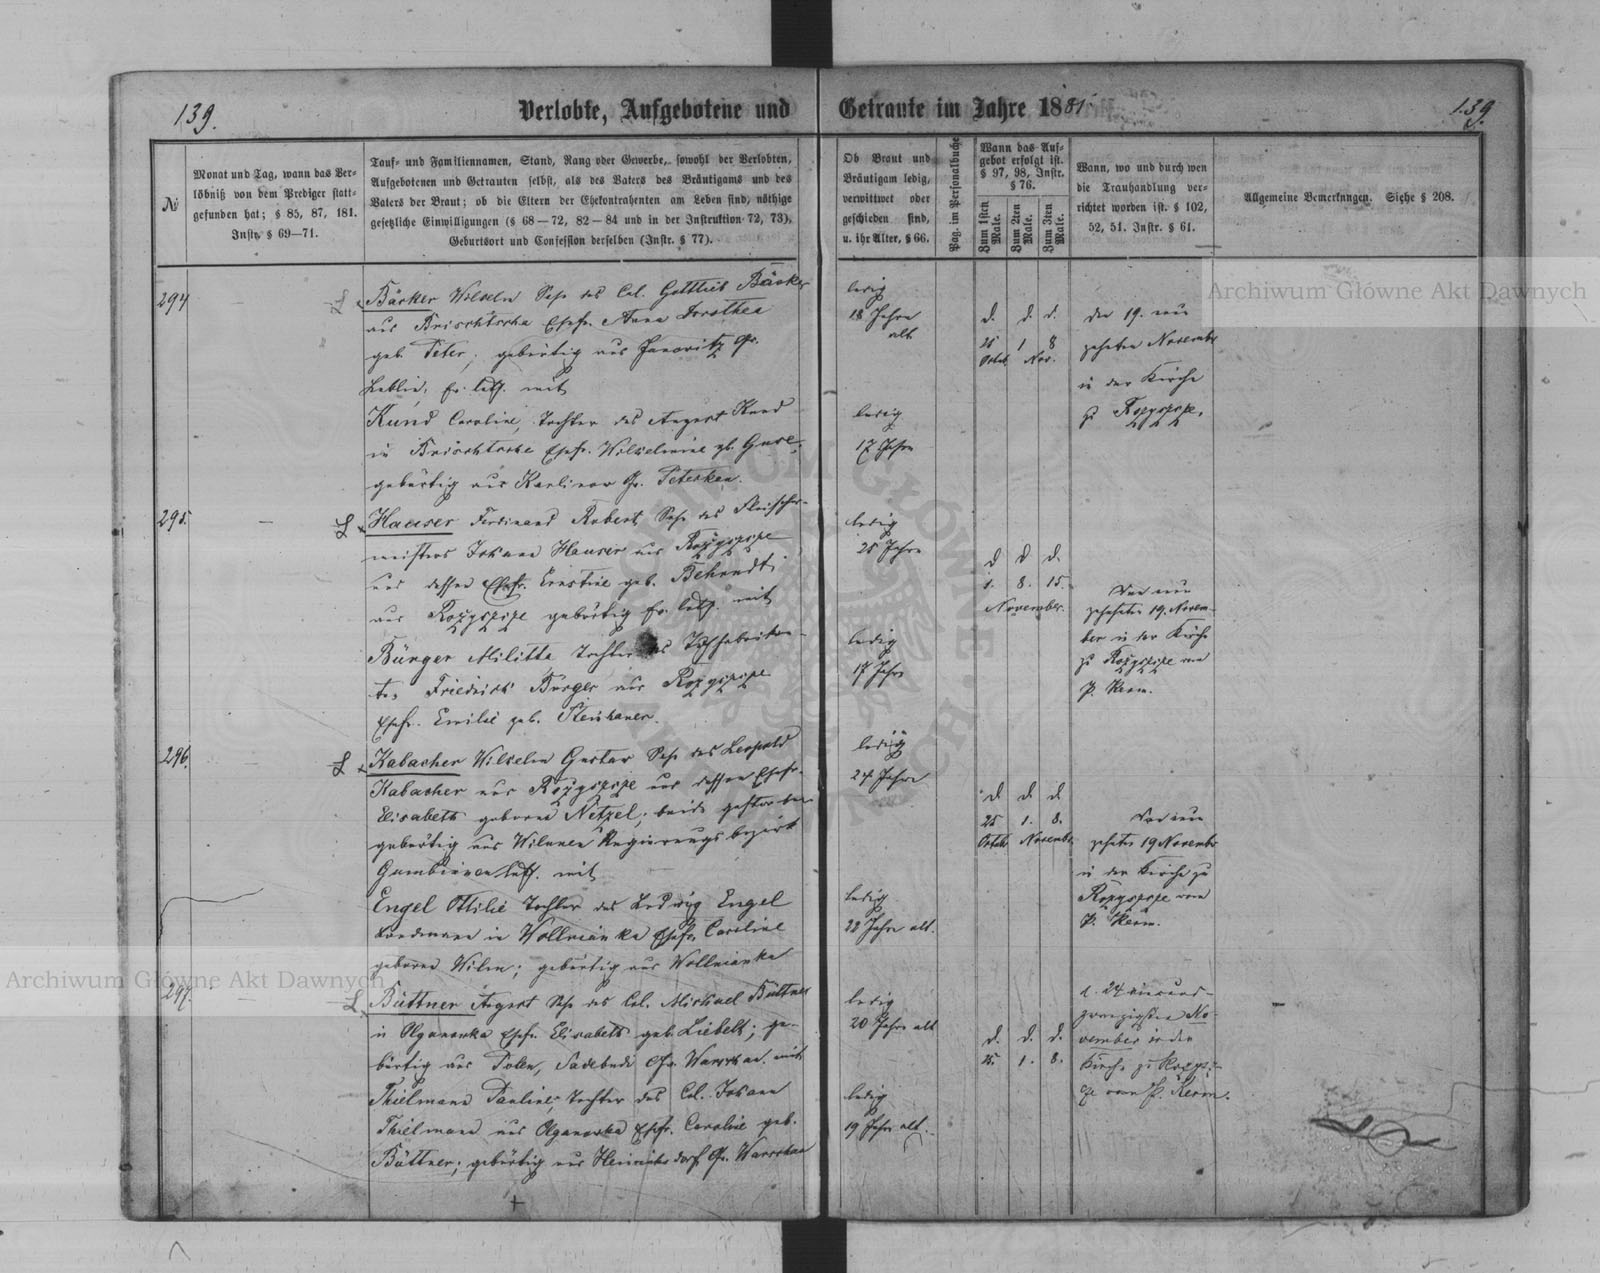 139.
Verlobte, Aufgebotene und Getraute im Jahre 1881
139.
№
Monat und Tag, wann das Ver-
löbniß von dem Prediger statt-
gefunden hat; § 85, 87, 181.
Instr. § 69—71.
Tauf- und Familiennamen, Stand, Rang oder Gewerbe, sowohl der Verlobten,
Aufgebotenen und Getrauten selbst, als des Vaters des Bräutigams und des
Vaters der Braut; ob die Eltern der Ehekontrahenten am Leben sind, nöthige
gesetzliche Einwilligungen (§ 68—72, 82—84 und in der Instruktion 72, 73).
Geburtsort und Confession derselben (Instr. § 77).
Ob Braut und
Bräutigam ledig,
verwittwet oder
geschieden sind,
u. ihr Alter, § 66.
Pag. im Personalbuche
Wann das Auf-
gebot erfolgt ist.
§ 97, 98, Instr.
§ 76.
Zum 1sten Male.
Zum 2ten Male.
Zum 3ten Male.
Wann, wo und durch wen
die Trauhandlung ver-
richtet worden ist. § 102,
52, 51. Instr. § 61.
Allgemeine Bemerkungen. Siehe § 208.
294
Bäcker Wilhelm Sohn des Col. Gottlieb Bäcker
aus Brischtscha Ehefr. Anna Dorothea
geb. Peter, gebürtig aus Janovitz Gr.
Lublin, ev. luth. mit
Kund Caroline, Tochter des August Kund
in Brischtscha Ehefr. Wilhelmine gb. Guse,
gebürtig aus Karlinow Gr. Peterkau.
ledig
18 Jahre
alt
ledig
17 Jahre
d. d. d.
25 1 8
Octob. Nov.
den 19. neun
zehnten November
in der Kirche
zu Rozyszcze.
295.
Hauser Ferdinand Robert, Sohn des Fleischer-
meisters Johann Hauser aus Rozyszcze
und dessen Ehefr. Ernestine geb. Behrendt;
aus Rozyszcze gebürtig ev. luth. mit
Bürger Militta Tochter des Tuchfabrikan-
ten Friedrich Bürger aus Rozyszcze
Ehefr. Emilie geb. Steinhauer.
ledig
25 Jahre
ledig
17 Jahre
d d d.
1. 8. 15.
November.
Den neun
zehnten 19. Novem-
ber in der Kirche
zu Rozyszcze von
P. Kerm.
296.
Kabacher Wilhelm Gustav Sohn des Leopold
Kabacher aus Rozyszcze und dessen Ehefr.
Elisabeth geborne Netzel; beide gestorben
gebürtig aus Wilunen Regierungsbezirk
Gumbinnen luth. mit
Engel Ottilie Tochter des Ludwig Engel
Landmann in Wollnianka Ehefr. Caroline
geborne Wilm; gebürtig aus Wollnianka
ledig
24 Jahre
ledig
22 Jahre alt.
d. d. d
25 1. 8.
Octob. Novembr.
Den neun
zehnten 19 Novembr
in der Kirche zu
Rozyszcze von
P. Kerm.
297.
Büttner August Sohn des Col. Michael Büttner
in Olganowka Ehefr. Elisabeth geb. Liebelt; ge-
bürtig aus Polen, Gr. Warschau. mit
Thielmann Pauline, Tochter des Col. Johann
Thielmann aus Olganowka Ehefr. Caroline geb.
Büttner; gebürtig aus Heinrichsdorf Gr. Warschau
ledig
20 Jahre alt
ledig
19 Jahre alt.
d. d. d.
25. 1. 8.
d. 24 vierund-
zwanzigsten No-
vember in der
Kirche zu Rozysz-
cze von P. Kerm.
Archiwum Główne Akt Dawnych
Archiwum Główne Akt Dawnych